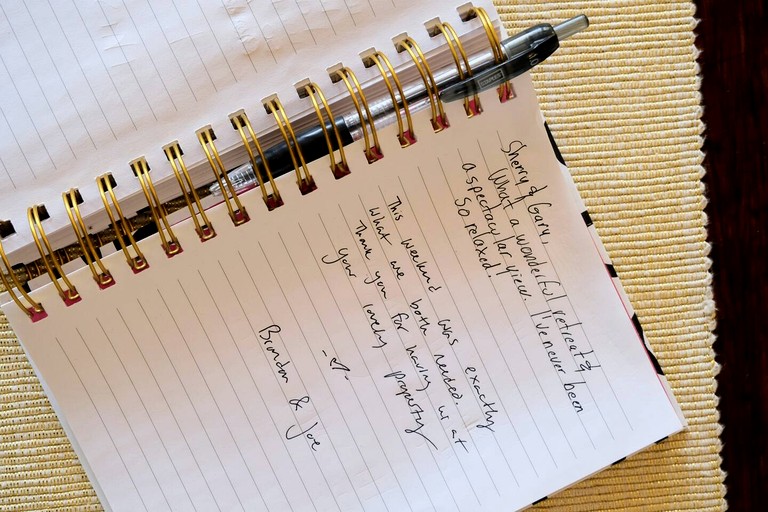 Sherry & Gary,
What a wonderful retreat &
a spectacular view. I've never been
so relaxed!
This weekend was exactly
what we both needed.
Thank you for having us at
your lovely property
Brandon & Joe